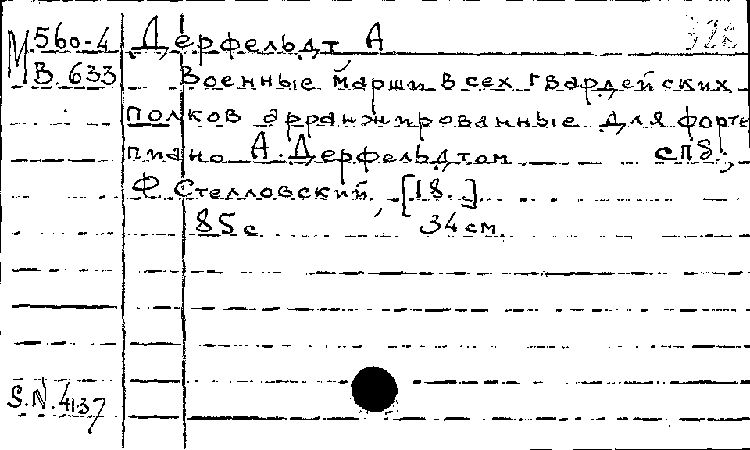 М 560-4 Дерфельдт А 326
В. 633 Военные марши всех гвардейских
полков арранжированные для форте
пиано А. Дерфельдтом СПб.;
Ф. Стелловский, [18..]
85 с 34 см.
S.N. 4137